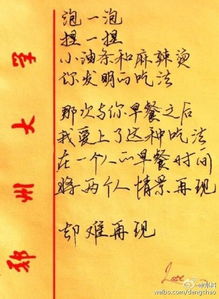 泡一泡
捏一捏
小油条和麻辣烫
你发明的吃法
那次与你早餐之后
我爱上了这种吃法
在一个人的早餐时间
将两个人情景再现
却难再现
郑州大学
weibo.com/dengchao